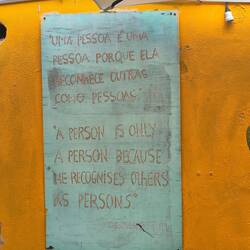 "UMA PESSOA É UMA
PESSOA PORQUE ELA
RECONHECE OUTRAS
COMO PESSOAS."
"A PERSON IS ONLY
A PERSON BECAUSE
HE RECOGNISES OTHERS
AS PERSONS"